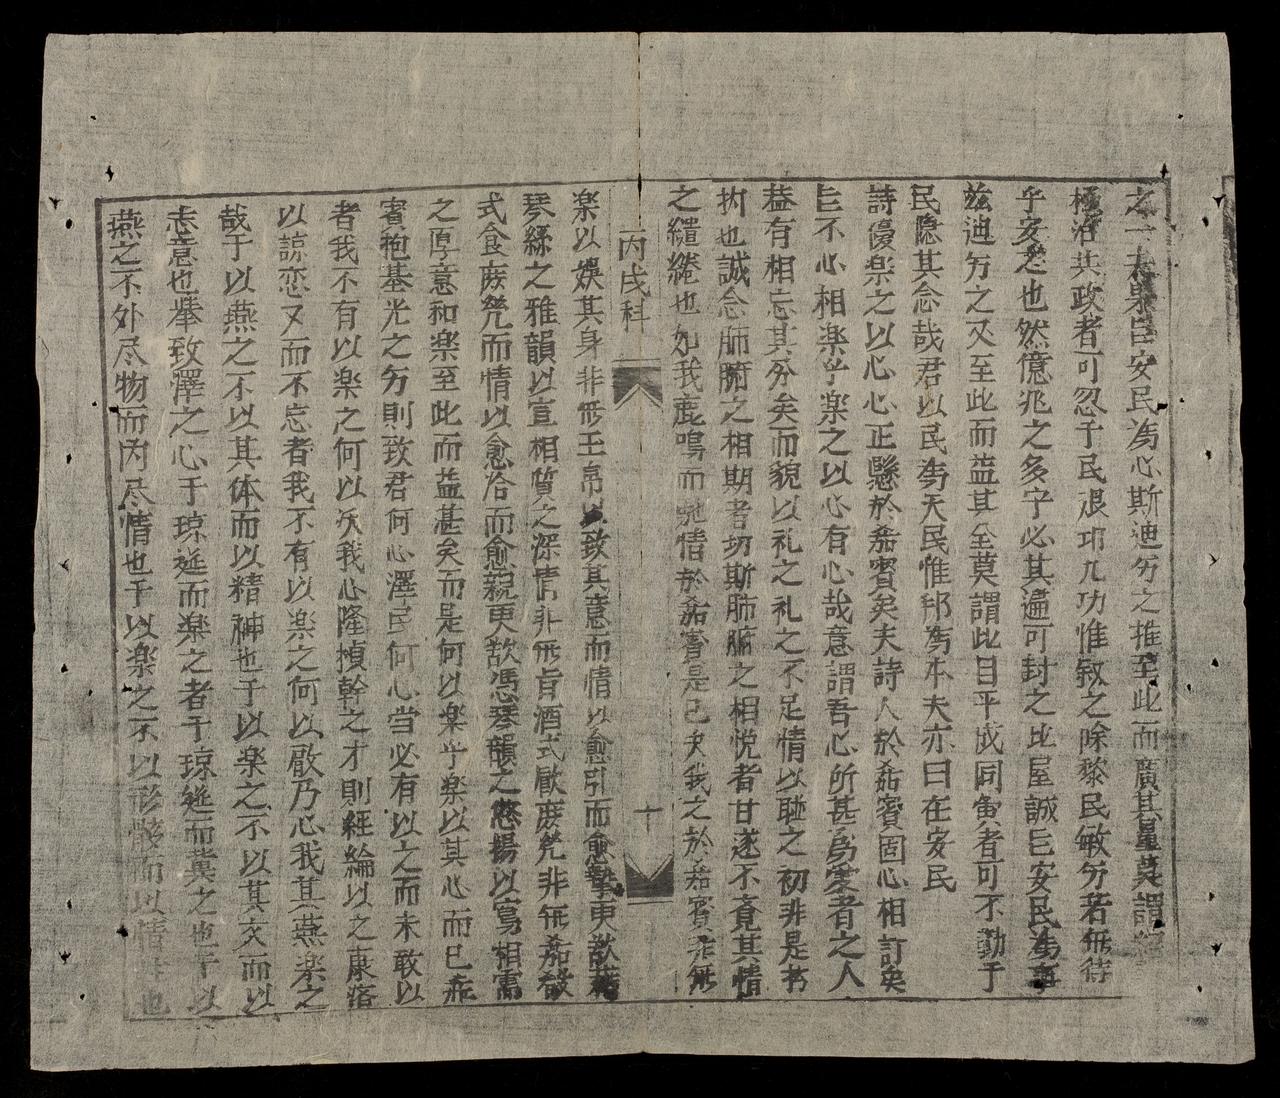 之一夫杲㠯安民为心斯迪分之推至此而廣其量莫謂
共政者可忍于民艰卭九功惟敘之除黎民敏分若無待
乎安之也然億兆之多字必其遍可封之比屋誠㠯安民为事
兹迪分之又至此而益其全莫謂此日平成同寅者可不勤于
民隐其念哉君以民为天民惟邦为本夫亦曰在安民
詩優楽之以心心正懸於嘉賓矣夫詩人於嘉賓固心相訂矣
㠯不心相楽乎楽之以心有心哉意謂吾心所甚為愛者之人
益有相忘其分矣而貌以礼之礼之不足情以聯之初非是为
拘也誠念肺腑之相期者切斯肺腑之相悅者甘遂不覺其情
之繾綣也如我鹿鳴而情於嘉賓是已夫我之於嘉賓非無
丙戌科
十
楽以娛其身非無玉帛以致其意而情以愈引而愈摯更歆
琴絲之雅韻以宣相質之深情非無旨酒式歐庶凭非無嘉殽
式食庶凭而情以愈洽而愈親更歆憑琴韻之悠揚以寫相需
之厚意和楽至此而益甚矣而是何以楽乎楽以其心而已
賓抱基光之分則致君何心澤民何心当必有以之而未敢以
者我不有以楽之何以沃我心隆楨幹之才則経綸以之康済
以諒恋又而不忘者我不有以楽之何以啟乃心我其燕楽之
哉于以燕之不以其体而以精神也于以楽之不以其文而以
志意也拳致懌之心于琼筵而楽之者于琼筵而冀之也于以
燕之不外尽物而内尽情也于以楽之不以形骸而以情也